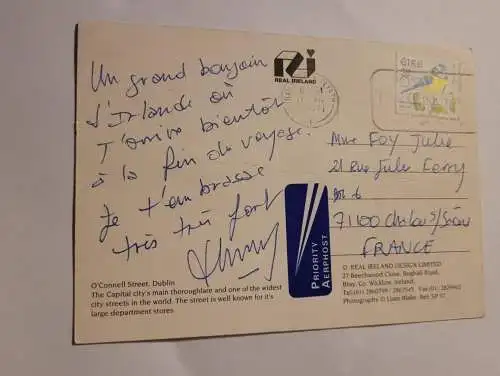 REAL IRELAND
ÉIRE
Un grand bonjour
d'Irlande où
J'arrive bientôt
à la fin du voyage.
Je t'embrasse
très très fort
Mme FOY Julie
21 Rue Jules Ferry
71100 Chalon s/Saône
FRANCE
PRIORITY
AERPHOST
O'Connell Street, Dublin
The Capital city's main thoroughfare and one of the widest
city streets in the world. The street is well known for it's
large department stores
© REAL IRELAND DESIGN LIMITED
27 Beechwood Close, Boghall Road,
Bray, Co. Wicklow, Ireland.
Photography © Liam Blake Ref: SP 97